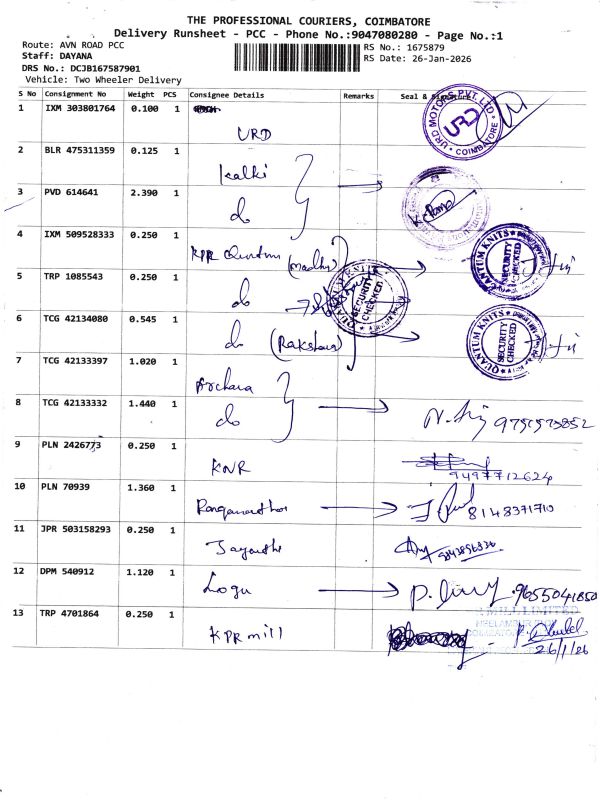 THE PROFESSIONAL COURIERS, COIMBATORE
Delivery Runsheet - PCC - Phone No.:9047080280 - Page No.:1
Route: AVN ROAD PCC
Staff: DAYANA
DRS No.: DCJB167587901
Vehicle: Two Wheeler Delivery
RS No.: 1675879
RS Date: 26-Jan-2026
S No Consignment No Weight PCS Consignee Details Remarks Seal &
1 IXM 303801764 0.100 1
URD
URD MOTORS PVT. LTD. URD COIMBATORE
2 BLR 475311359 0.125 1
Kalki
3 PVD 614641 2.390 1
do
4 IXM 509528333 0.250 1
KPR Quantum (Madhu)
QUANTUM KNITS SECURITY CHECKED
5 TRP 1085543 0.250 1
do
SECURITY CHECKED
6 TCG 42134080 0.545 1
do (Rakshana)
QUANTUM KNITS SECURITY CHECKED
7 TCG 42133397 1.020 1
Archana
8 TCG 42133332 1.440 1
do
9751573852
9 PLN 2426773 0.250 1
KNR
9497712624
10 PLN 70939 1.360 1
Ranganathan
8148371710
11 JPR 503158293 0.250 1
Jayanthi
12 DPM 540912 1.120 1
Logu
9655041850
MILL LIMITED
13 TRP 4701864 0.250 1
KPR mill
26/1/26